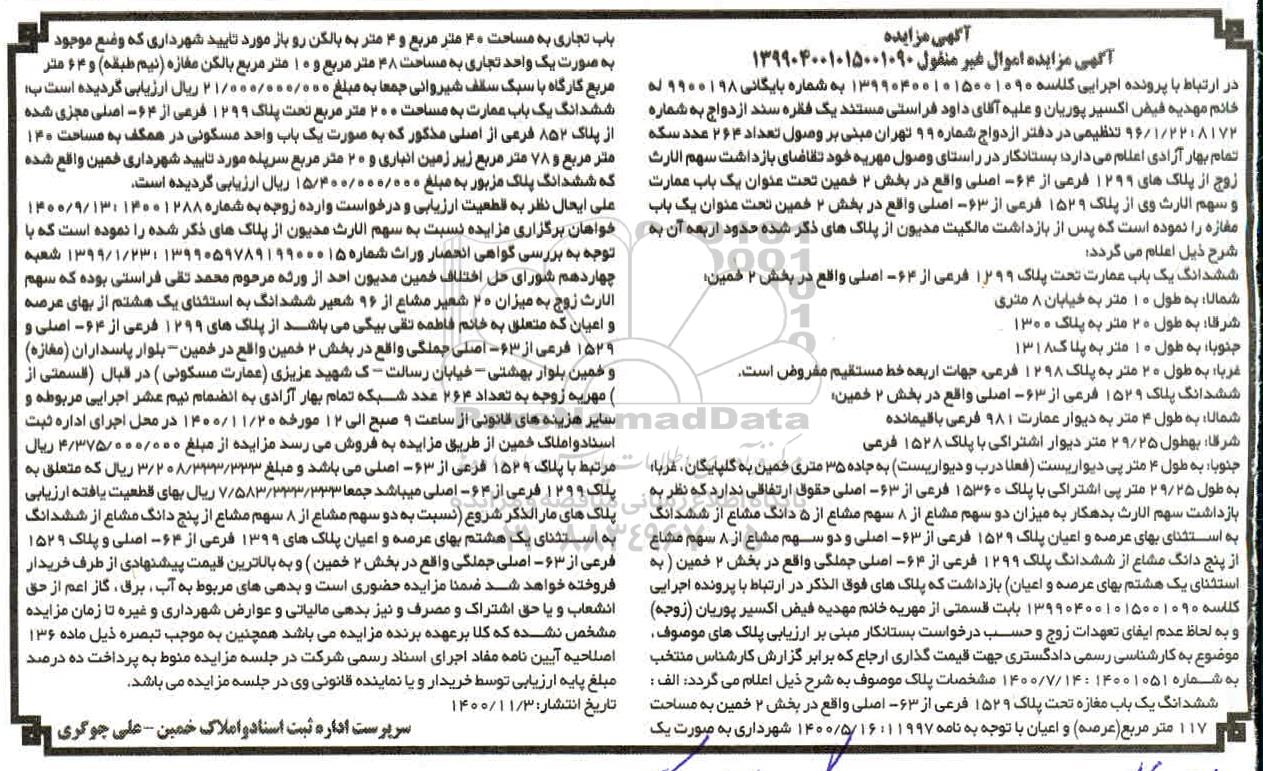 آگهی مزایده
آگهی مزایده اموال غیر منقول ۱۳۹۹۰۴۰۰۱۰۱۵۰۰۱۰۹۰
در ارتباط با پرونده اجرایی کلاسه ۱۳۹۹۰۴۰۰۱۰۱۵۰۰۱۰۹۰ به شماره بایگانی ۹۹۰۰۱۹۸ له
خانم مهدیه فیض اکسیر پوریان و علیه آقای داود فراستی مستند یک فقره سند ازدواج به شماره
۹۶/۱/۲۲:۸۱۷۲ تنظیمی در دفتر ازدواج شماره ۹۹ تهران مبنی بر وصول تعداد ۲۶۴ عدد سکه
تمام بهار آزادی اعلام می دارد؛ بستانکار در راستای وصول مهریه خود تقاضای بازداشت سهم الارث
زوج از پلاک های ۱۲۹۹ فرعی از ۶۴- اصلی واقع در بخش ۲ خمین تحت عنوان یک باب عمارت
و سهم الارث وی از پلاک ۱۵۲۹ فرعی از ۶۳- اصلی واقع در بخش ۲ خمین تحت عنوان یک باب
مغازه را نموده است که پس از بازداشت مالکیت مدیون از پلاک های ذکر شده حدود اربعه آن به
شرح ذیل اعلام می گردد:
ششدانگ یک باب عمارت تحت پلاک ۱۲۹۹ فرعی از ۶۴- اصلی واقع در بخش ۲ خمین:
شمالا: به طول ۱۰ متر به خیابان ۸ متری
شرقا: به طول ۲۰ متر به پلاک ۱۳۰۰
جنوبا: به طول ۱۰ متر به پلاک ۱۳۱۸
غربا: به طول ۲۰ متر به پلاک ۱۲۹۸ فرعی. جهات اربعه خط مستقیم مفروض است.
ششدانگ پلاک ۱۵۲۹ فرعی از ۶۳- اصلی واقع در بخش ۲ خمین:
شمالا: به طول ۴ متر به دیوار عمارت ۹۸۱ فرعی باقیمانده
شرقا: بهطول ۲۹/۲۵ متر دیوار اشتراکی با پلاک ۱۵۲۸ فرعی
جنوبا: به طول ۴ متر پی دیواریست (فعلا درب و دیواریست) به جاده ۳۵ متری خمین به گلپایگان، غربا:
به طول ۲۹/۲۵ متر پی اشتراکی با پلاک ۱۵۳۶۰ فرعی از ۶۳- اصلی حقوق ارتفاقی ندارد که نظر به
بازداشت سهم الارث بدهکار به میزان دو سهم مشاع از ۸ سهم مشاع از ۵ دانگ مشاع از ششدانگ
به استثنای بهای عرصه و اعیان پلاک ۱۵۲۹ فرعی از ۶۳- اصلی و دو سهم مشاع از ۸ سهم مشاع
از پنج دانگ مشاع از ششدانگ پلاک ۱۲۹۹ فرعی از ۶۴- اصلی جملگی واقع در بخش ۲ خمین ( به
استثنای یک هشتم بهای عرصه و اعیان) بازداشت که پلاک های فوق الذکر در ارتباط با پرونده اجرایی
کلاسه ۱۳۹۹۰۴۰۰۱۰۱۵۰۰۱۰۹۰ بابت قسمتی از مهریه خانم مهدیه فیض اکسیر پوریان (زوجه)
و به لحاظ عدم ایفای تعهدات زوج و حسب درخواست بستانکار مبنی بر ارزیابی پلاک های موصوف،
موضوع به کارشناسی رسمی دادگستری جهت قیمت گذاری ارجاع که برابر گزارش کارشناس منتخب
به شماره ۱۴۰۰۱۰۵۱ : ۱۴۰۰/۷/۱۴ مشخصات پلاک موصوف به شرح ذیل اعلام می گردد: الف :
ششدانگ یک باب مغازه تحت پلاک ۱۵۲۹ فرعی از ۶۳- اصلی واقع در بخش ۲ خمین به مساحت
۱۱۷ متر مربع(عرصه) و اعیان با توجه به نامه ۱۱۹۹۷: ۱۴۰۰/۵/۱۶ شهرداری به صورت یک
باب تجاری به مساحت ۴۰ متر مربع و ۴ متر به بالکن رو باز مورد تایید شهرداری که وضع موجود
به صورت یک واحد تجاری به مساحت ۴۸ متر مربع و ۱۰ متر مربع بالکن مغازه (نیم طبقه) و ۶۴ متر
مربع کارگاه با سبک سقف شیروانی جمعا به مبلغ ۲۱/۰۰۰/۰۰۰/۰۰۰ ریال ارزیابی گردیده است ب:
ششدانگ یک باب عمارت به مساحت ۲۰۰ متر مربع تحت پلاک ۱۲۹۹ فرعی از ۶۴- اصلی مجزی شده
از پلاک ۸۵۲ فرعی از اصلی مذکور که به صورت یک باب واحد مسکونی در همکف به مساحت ۱۴۰
متر مربع و ۷۸ متر مربع زیر زمین انباری و ۲۰ متر مربع سرپله مورد تایید شهرداری خمین واقع شده
که ششدانگ پلاک مزبور به مبلغ ۱۵/۴۰۰/۰۰۰/۰۰۰ ریال ارزیابی گردیده است.
علی ایحال نظر به قطعیت ارزیابی و درخواست وارده زوجه به شماره ۱۴۰۰۱۲۸۸ :۱۴۰۰/۹/۱۳
خواهان برگزاری مزایده نسبت به سهم الارث مدیون از پلاک های ذکر شده را نموده است که با
توجه به بررسی گواهی انحصار وراث شماره ۱۳۹۹۰۵۹۷۸۹۱۹۹۰۰۰۱۵ :۱۳۹۹/۱/۲۳ شعبه
چهاردهم شورای حل اختلاف خمین مدیون احد از ورثه مرحوم محمد تقی فراستی بوده که سهم
الارث زوج به میزان ۲۰ شعیر مشاع از ۹۶ شعیر ششدانگ به استثنای یک هشتم از بهای عرصه
و اعیان که متعلق به خانم فاطمه تقی بیگی می باشد از پلاک های ۱۲۹۹ فرعی از ۶۴- اصلی و
۱۵۲۹ فرعی از ۶۳- اصلی جملگی واقع در بخش ۲ خمین واقع در خمین – بلوار پاسداران (مغازه)
و خمین بلوار بهشتی – خیابان رسالت – ک شهید عزیزی (عمارت مسکونی ) در قبال (قسمتی از
) مهریه زوجه به تعداد ۲۶۴ عدد شبکه تمام بهار آزادی به انضمام نیم عشر اجرایی مربوطه و
سایر هزینه های قانونی از ساعت ۹ صبح الی ۱۲ مورخه ۱۴۰۰/۱۱/۲۰ در محل اجرای اداره ثبت
اسناد و املاک خمین از طریق مزایده به فروش می رسد مزایده از مبلغ ۴/۳۷۵/۰۰۰/۰۰۰ ریال
مرتبط با پلاک ۱۵۲۹ فرعی از ۶۳- اصلی می باشد و مبلغ ۳/۲۰۸/۳۳۳/۳۳۳ ریال که متعلق به
پلاک ۱۲۹۹ فرعی از ۶۴- اصلی میباشد جمعا ۷/۵۸۳/۳۳۳/۳۳۳ ریال بهای قطعیت یافته ارزیابی
پلاک های مارالذکر شروع (نسبت به دو سهم مشاع از ۸ سهم مشاع از پنج دانگ مشاع از ششدانگ
به استثنای یک هشتم بهای عرصه و اعیان پلاک های ۱۳۹۹ فرعی از ۶۴- اصلی و پلاک ۱۵۲۹
فرعی از ۶۳- اصلی جملگی واقع در بخش ۲ خمین ) و به بالاترین قیمت پیشنهادی از طرف خریدار
فروخته خواهد شد ضمنا مزایده حضوری است و بدهی های مربوط به آب، برق، گاز اعم از حق
انشعاب و یا حق اشتراک و مصرف و نیز بدهی مالیاتی و عوارض شهرداری و غیره تا زمان مزایده
مشخص نشده که کلا برعهده برنده مزایده می باشد همچنین به موجب تبصره ذیل ماده ۱۳۶
اصلاحیه آیین نامه مفاد اجرای اسناد رسمی شرکت در جلسه مزایده منوط به پرداخت ده درصد
مبلغ پایه ارزیابی توسط خریدار و یا نماینده قانونی وی در جلسه مزایده می باشد.
تاریخ انتشار: ۱۴۰۰/۱۱/۳
سرپرست اداره ثبت اسناد و املاک خمین – علی جوگری
ParsNamadData